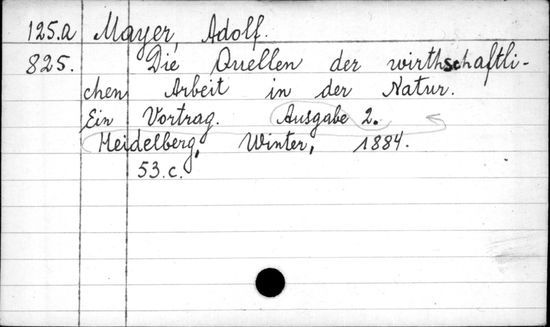 125.a Mayer, Adolf.
825. Die Quellen der wirthschaftli-
chen Arbeit in der Natur.
Ein Vortrag. Ausgabe 2.
Heidelberg, Winter, 1884.
53.c.